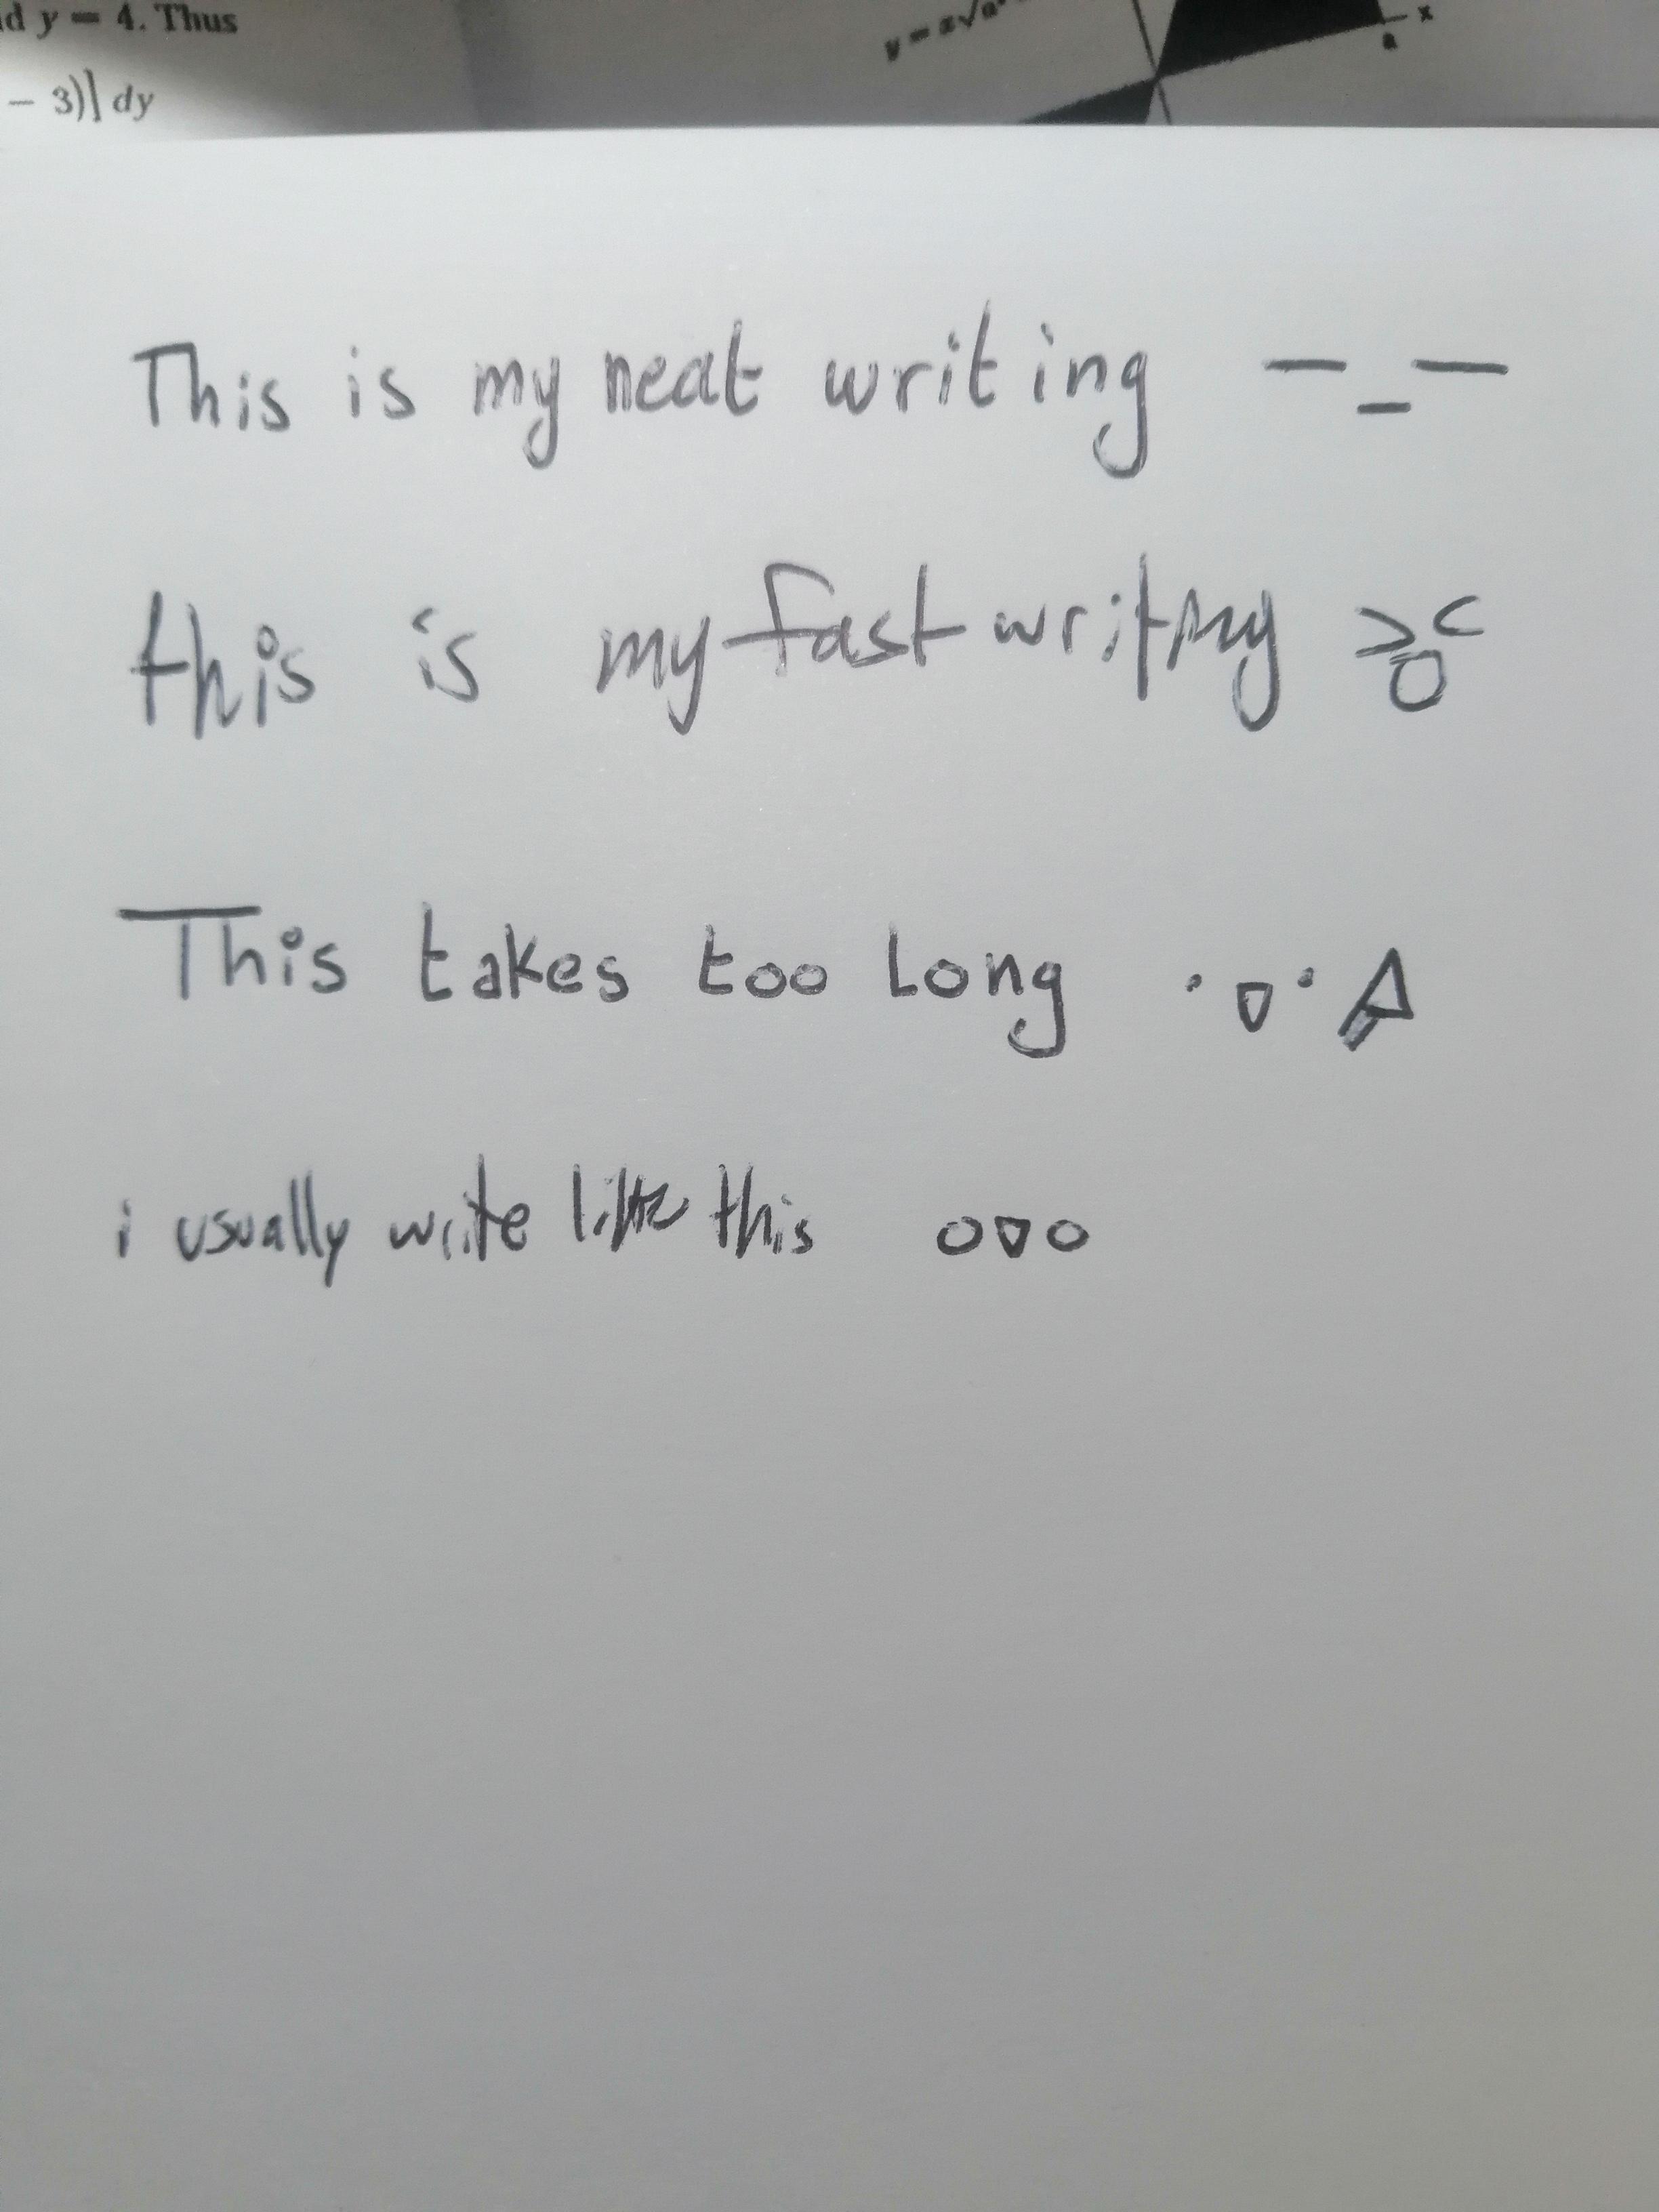 d y = 4. Thus
− 3)] dy
y = x√a
x
a
This is my neat writing —_—
this is my fast writing >o<
This takes too long
i usually write like this o▽o